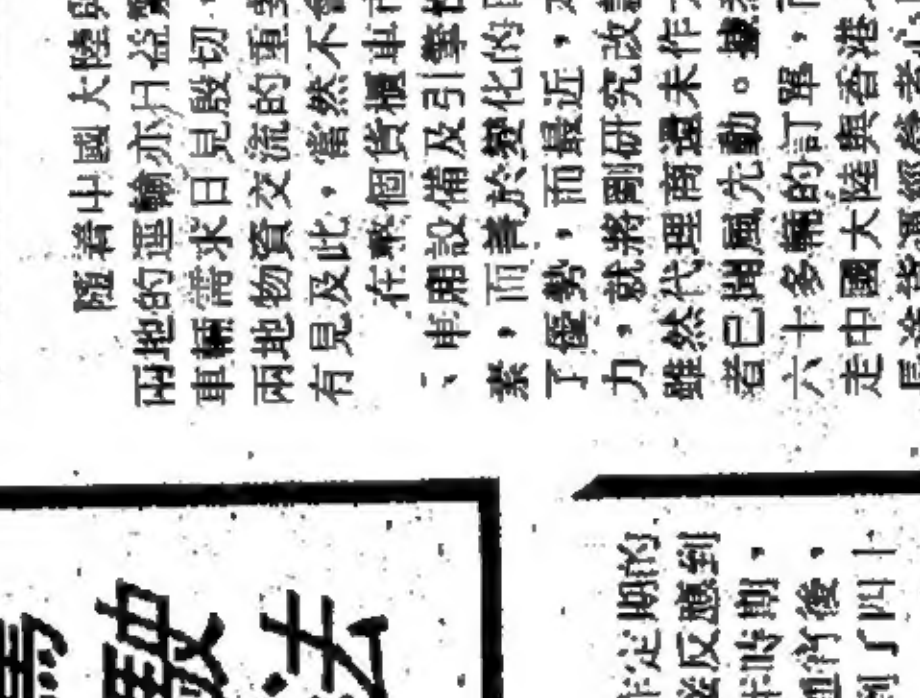 隨着中國大陸與
兩地的運輸亦日益繁
車輛需求日見殷切
兩地物資交流的重要
有見及此，當然不會
在整個貨櫃車市
、車用設備及引擎性
素，而善於變化的
了優勢，而最近，
力，就將剛研究改
雖然代理商還未作
着已聞風先動。據
六十多輛的訂單，而
走中國大陸與香港
長途貨運經
駛
法
定期的
反應到
時期，
後，
到了四十